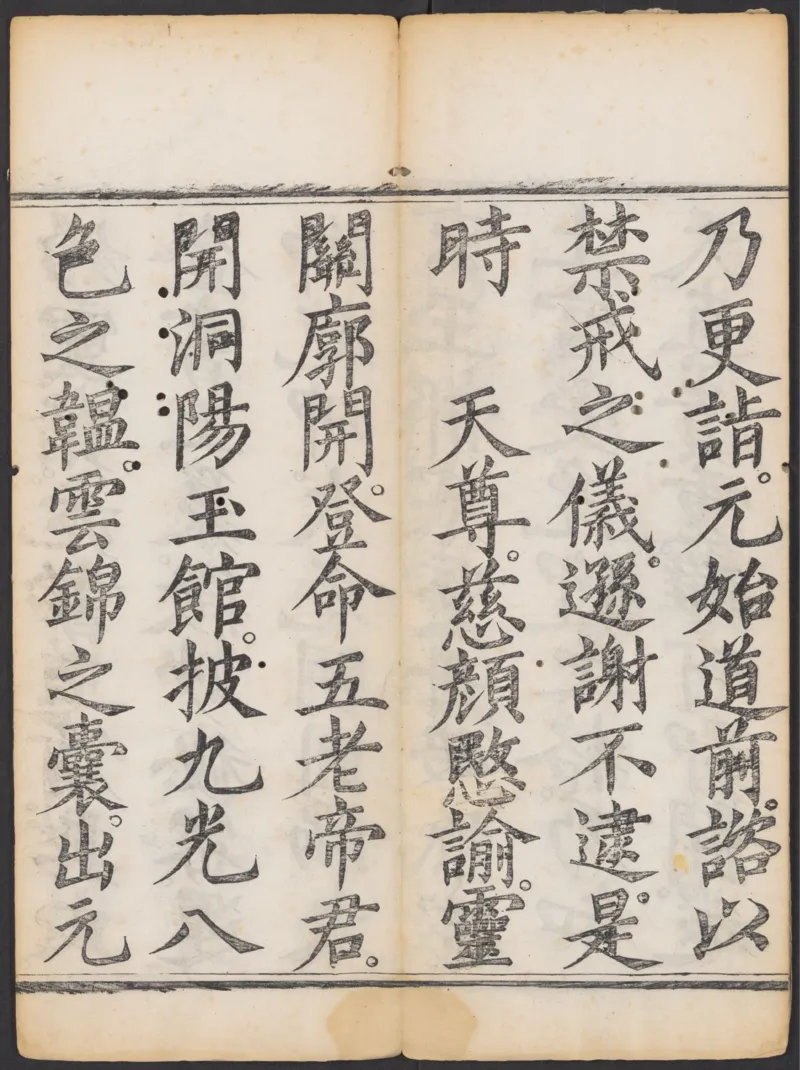 乃更詣。元始道前。諮以
禁戒之儀。遜謝不逮。是
時　天尊。慈顏愍諭。靈
關廓開。登命五老帝君。
開洞陽玉館。披九光八
色之韞。雲錦之囊。出元